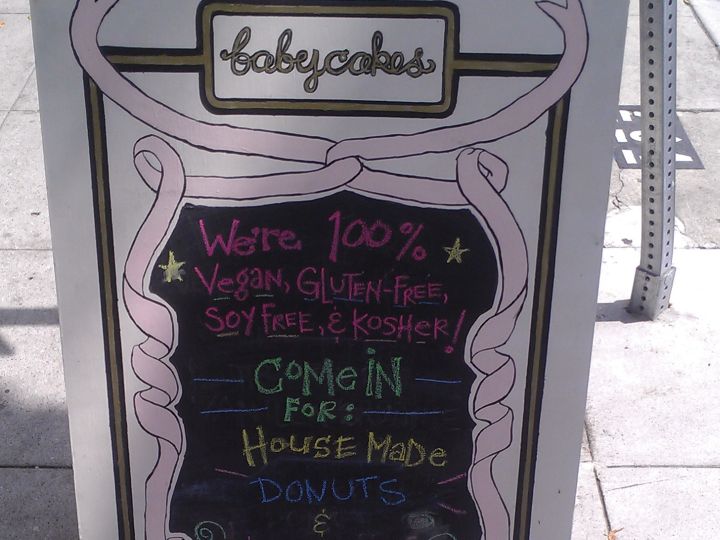 babycakes
We're 100%
Vegan, Gluten-Free,
Soy Free, & Kosher!
Come in
For:
House Made
Donuts
&